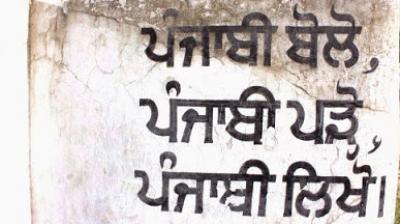 ਪੰਜਾਬੀ ਬੋਲੋ,
ਪੰਜਾਬੀ ਪੜੋ,
ਪੰਜਾਬੀ ਲਿਖੋ।